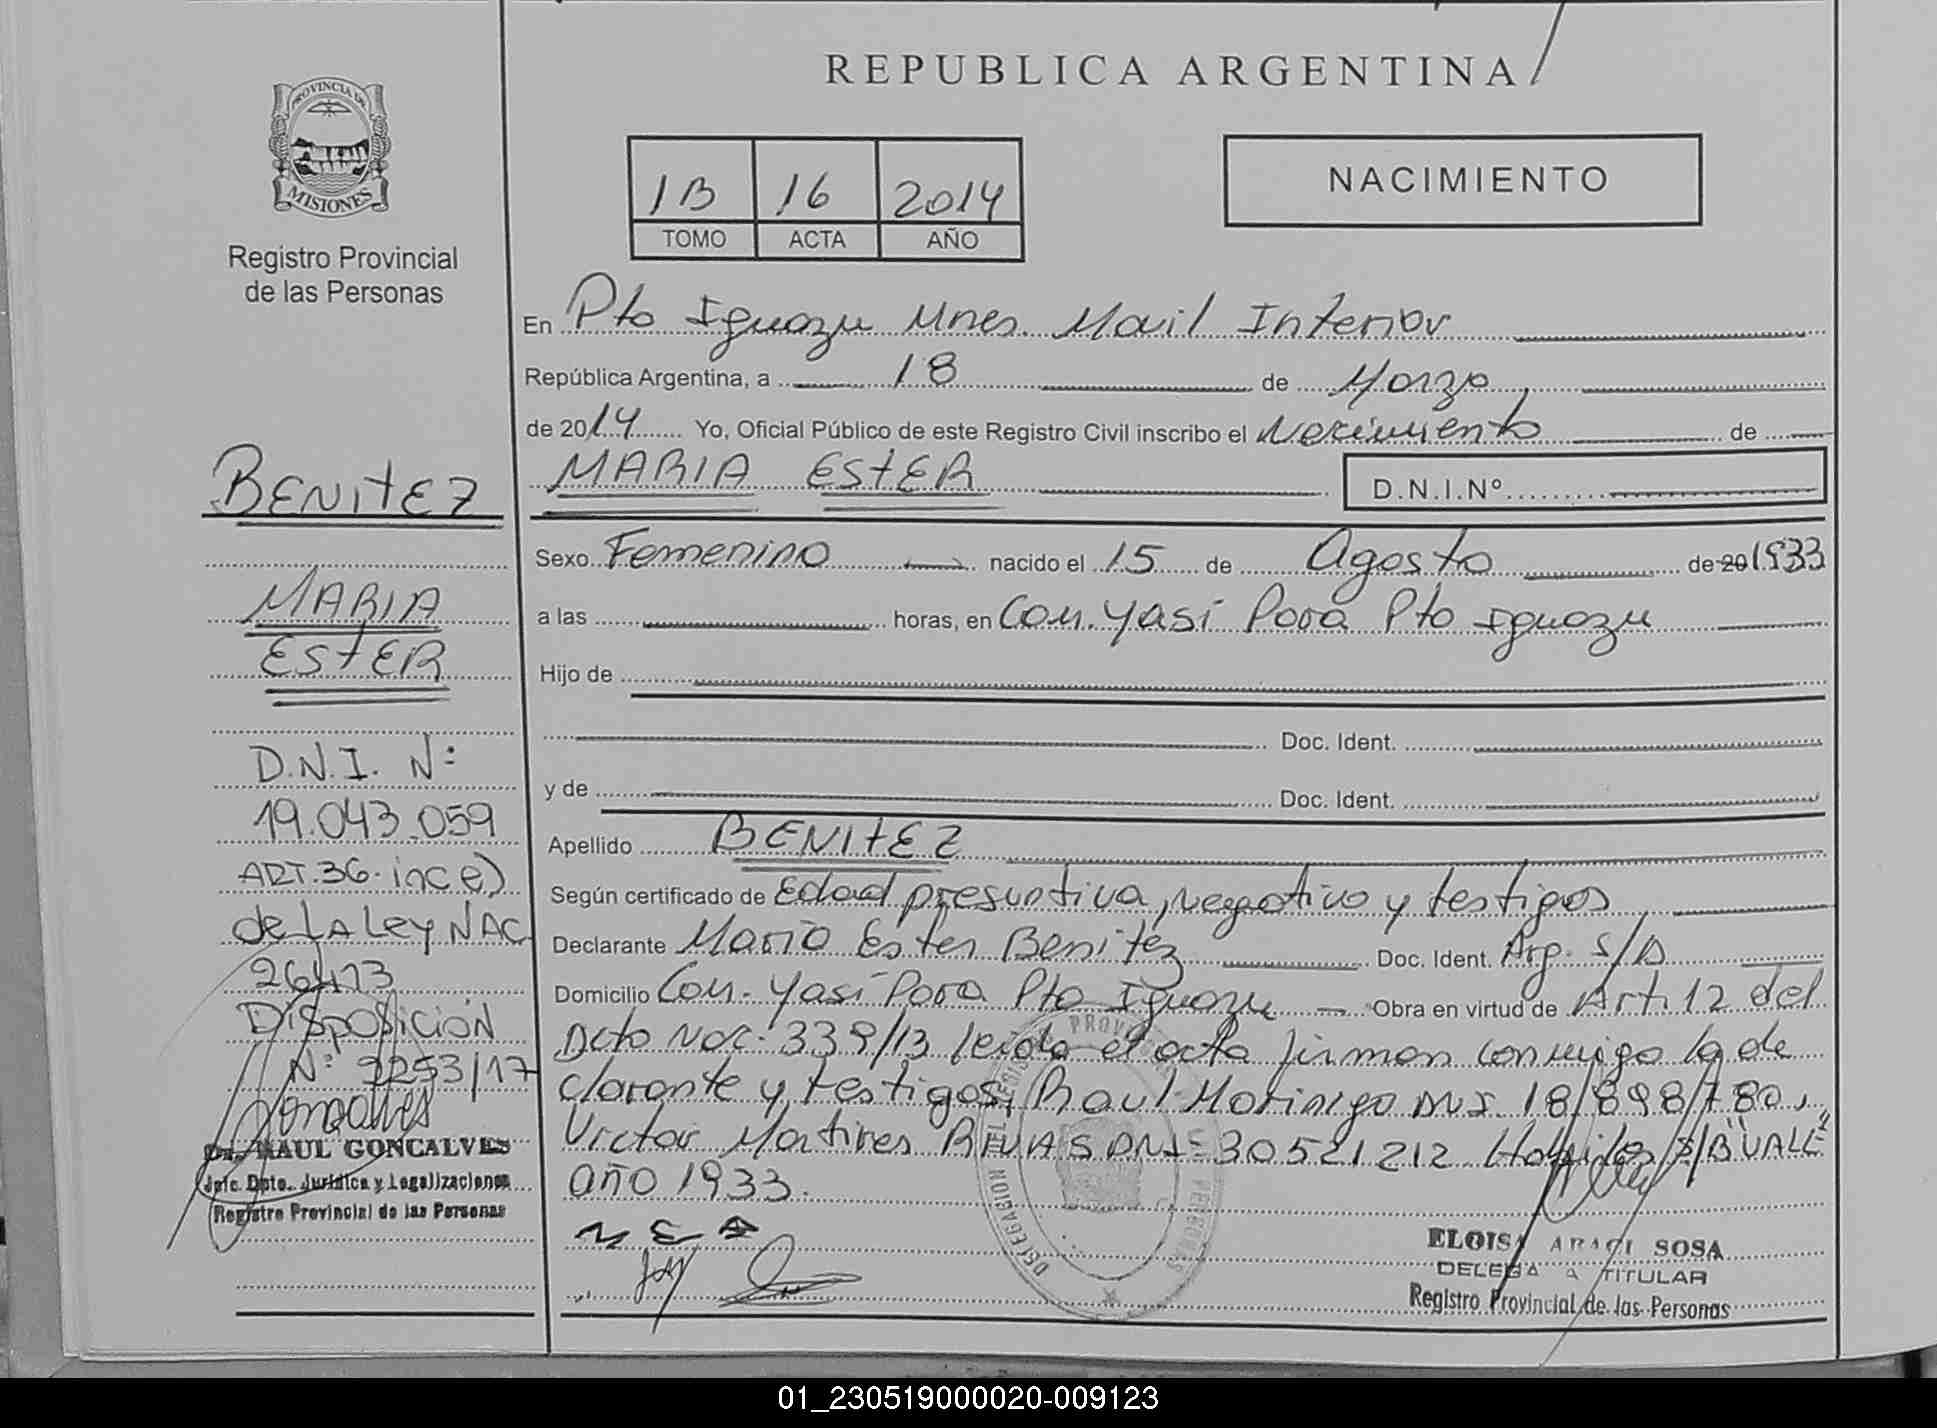 REPUBLICA ARGENTINA
PROVINCIA DE
MISIONES
Registro Provincial
de las Personas
1B 16 2014
TOMO ACTA AÑO
NACIMIENTO
En Pto Iguazu Mnes. Movil Interior
República Argentina, a 18 de Marzo
de 2014 Yo, Oficial Público de este Registro Civil inscribo el Nacimiento de
MARIA ESTER D.N.I.Nº
Sexo Femenino nacido el 15 de Agosto de 20 1933
a las horas, en Com. Yasi Pora Pto Iguazu
Hijo de
Doc. Ident.
y de Doc. Ident.
Apellido BENITEZ
Según certificado de Edad presuntiva, negativo y testigos
Declarante Maria Ester Benitez Doc. Ident. Arg. S/D
Domicilio Com. Yasi Pora Pto Iguazu Obra en virtud de Art. 12 del
Dcto Nac. 339/13 leida el acta firman conmigo la de
clarante y testigos, Raul Morinigo DNI. 18/898/780,
Victor Martires RIVAS DNI= 30521212 S/B "VALE"
año 1933.
ELOISA ARACI SOSA
DELEGADA TITULAR
Registro Provincial de las Personas
BENITEZ
MARIA
ESTER
D.N.I. Nº
19.043.059
ART. 36 inc e)
de LA Ley NAC
26413
Disposición
Nº 2253/17
Goncalves
Dr. RAUL GONCALVES
Jefe Dpto. Jurídica y Legalizaciones
Registro Provincial de las Personas
01_230519000020-009123